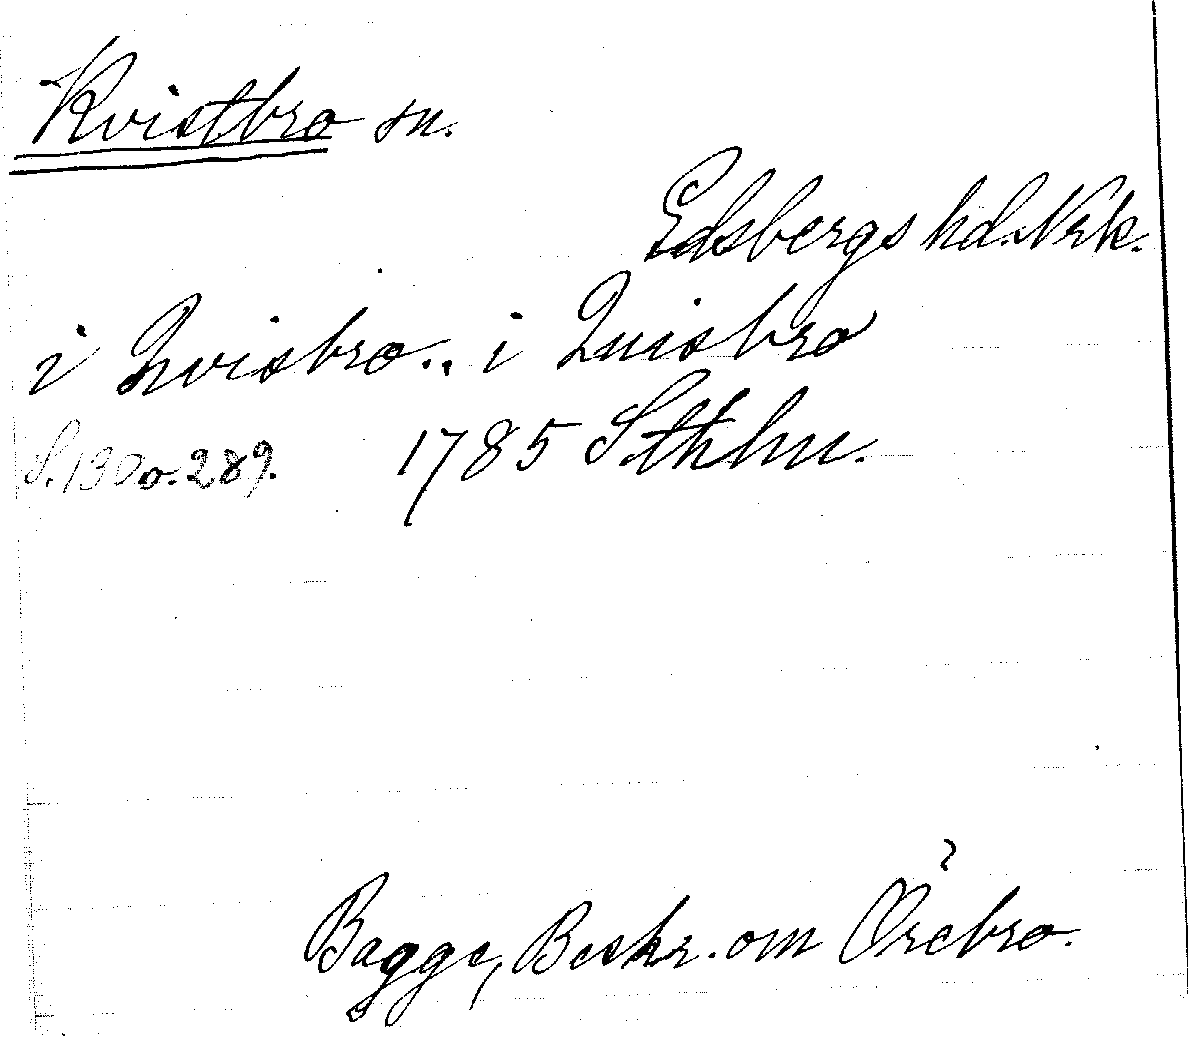 Kvistbro sn.
Edsbergs hd. Nrk.
i Qvisbro.. i Quisbro
S. 130 o. 289. 1785 Sthlm.
Bagge, Beskr. om Örebro.